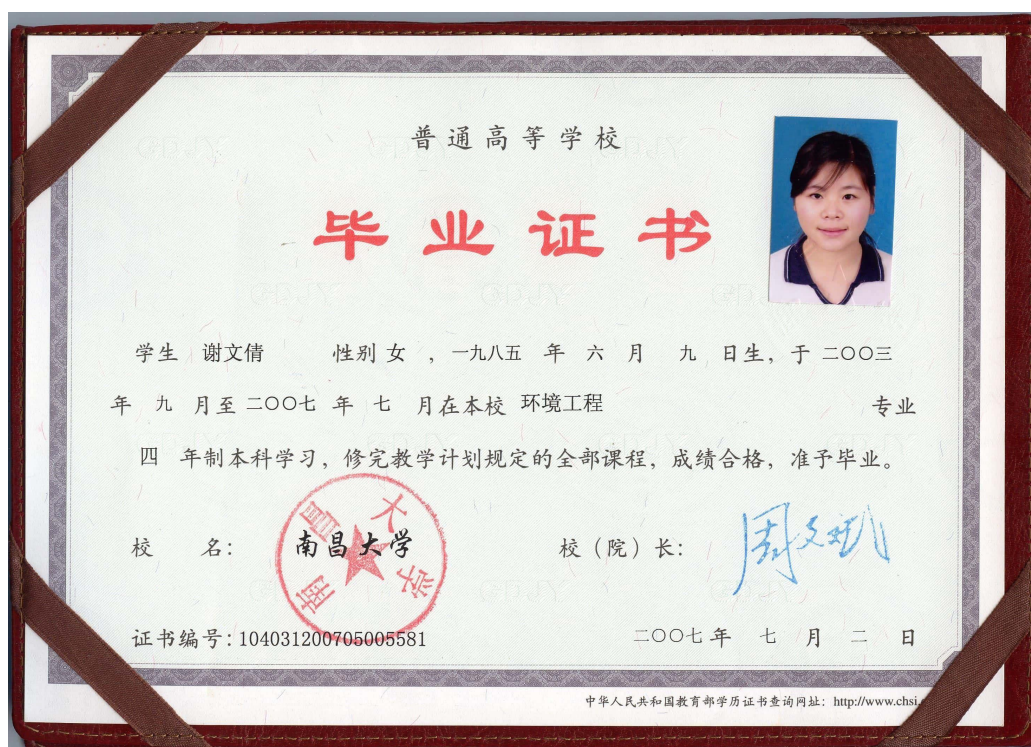 普通高等学校
毕业证书
学生 谢文倩 性别 女 ，一九八五 年 六 月 九 日生，于 二〇〇三
年 九 月至 二〇〇七 年 七 月在本校 环境工程 专业
四 年制本科学习，修完教学计划规定的全部课程，成绩合格，准予毕业。
校 名： 南昌大学 校（院）长： 周文斌
南昌大学
证书编号：104031200705005581 二〇〇七 年 七 月 二 日
中华人民共和国教育部学历证书查询网址：http://www.chsi.